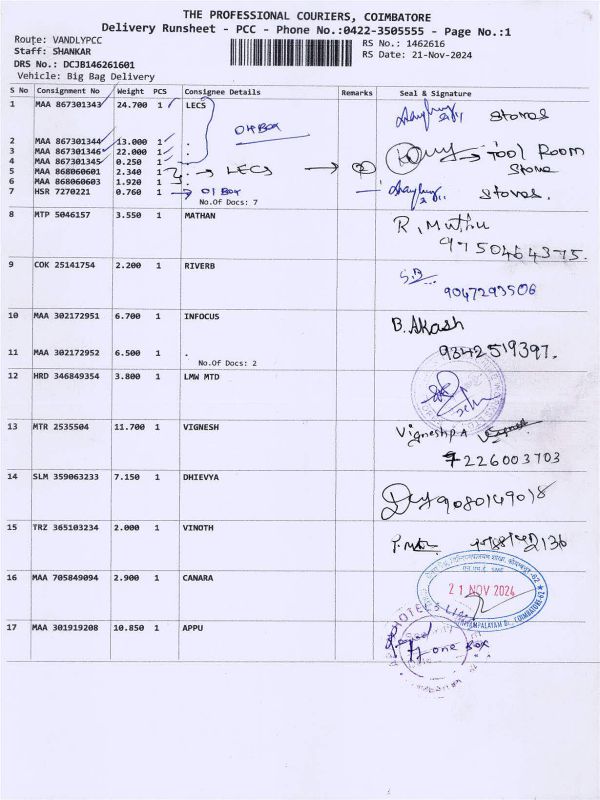 THE PROFESSIONAL COURIERS, COIMBATORE
Delivery Runsheet - PCC - Phone No.:0422-3505555 - Page No.:1
Route: VANDLYPCC
Staff: SHANKAR
RS No.: 1462616
RS Date: 21-Nov-2024
DRS No.: DCJB146261601
Vehicle: Big Bag Delivery
S No Consignment No Weight PCS Consignee Details Remarks Seal & Signature
1 MAA 867301343 24.700 1 LECS Stores
04 BOX
2 MAA 867301344 13.000 1 .
3 MAA 867301346 22.000 1 . Tool Room
4 MAA 867301345 0.250 1 . Store
5 MAA 868060601 2.340 1 . LECS
6 MAA 868060603 1.920 1 .
7 HSR 7270221 0.760 1 01 BOX Stores.
No.Of Docs: 7
8 MTP 5046157 3.550 1 MATHAN R. Muthu
9750464375.
9 COK 25141754 2.200 1 RIVERB
9047293506
10 MAA 302172951 6.700 1 INFOCUS B. Akash
11 MAA 302172952 6.500 1 . 9342519397.
No.Of Docs: 2
12 HRD 346849354 3.800 1 LMW MTD
13 MTR 2535504 11.700 1 VIGNESH Vignesh
7226003703
14 SLM 359063233 7.150 1 DHIEVYA 9080149018
15 TRZ 365103234 2.000 1 VINOTH
16 MAA 705849094 2.900 1 CANARA 21 NOV 2024
17 MAA 301919208 10.850 1 APPU HOTEL'S
one Box